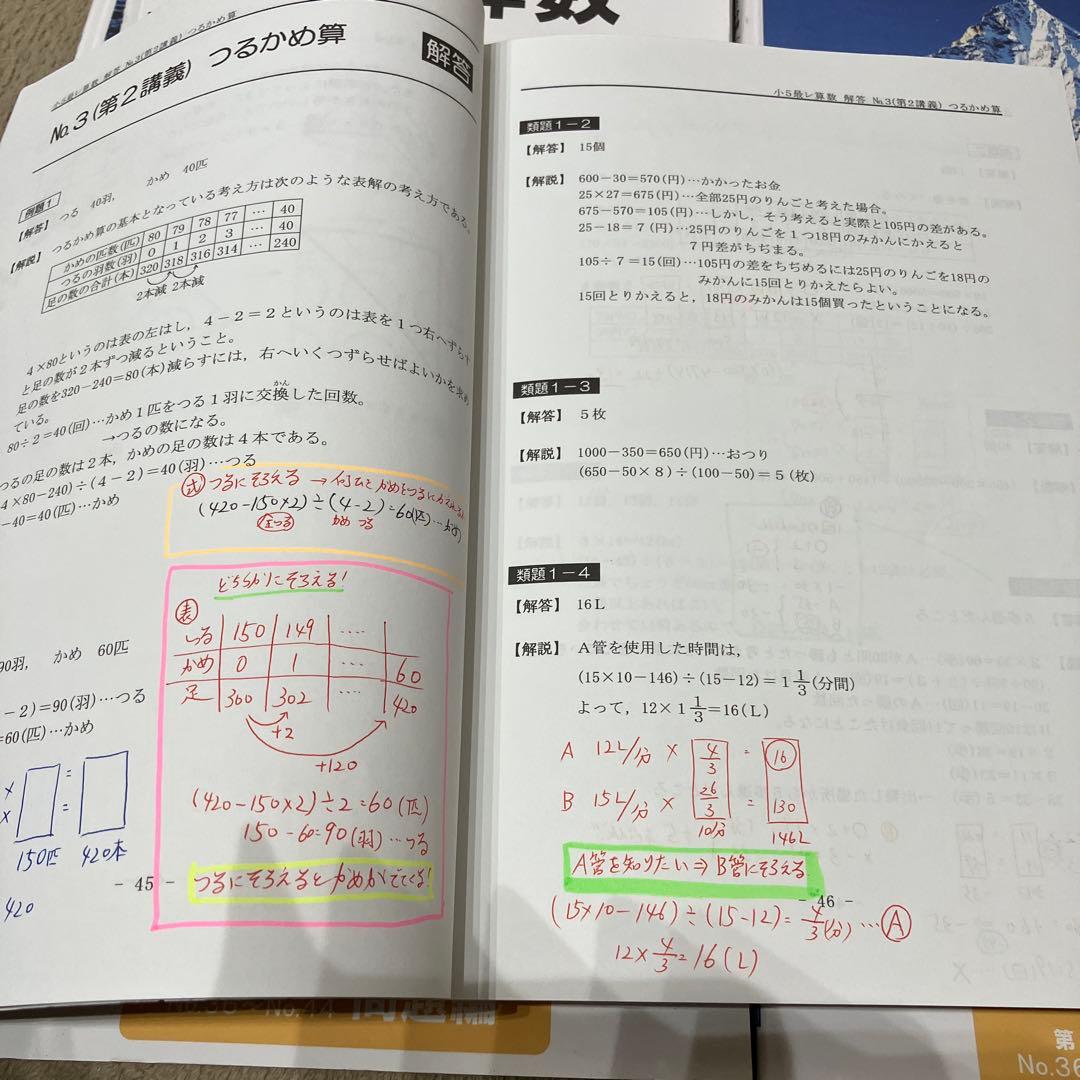 算数
小5最レ算数 解答 No.3(第2講義) つるかめ算
No.3(第2講義) つるかめ算
解答
例題1
【解答】 つる 40羽, かめ 40匹
【解説】 つるかめ算の基本となっている考え方は次のような表解の考え方である。
かめの匹数(匹) 80 79 78 77 … 40
つるの羽数(羽) 0 1 2 3 … 40
足の数の合計(本) 320 318 316 314 … 240
2本減 2本減
4×80というのは表の左はし, 4−2=2というのは表を1つ右へずらす
と足の数が2本ずつ減るということ。
足の数を320−240=80(本)減らすには, 右へいくつずらせばよいかを求め
ている。
80÷2=40(回)…かめ1匹をつる1羽に交換した回数。
かん
→つるの数になる。
つるの足の数は2本, かめの足の数は4本である。
4×80−240)÷(4−2)=40(羽)…つる
−40=40(匹)…かめ
式 つるにそろえる →
(420−150×2)÷(4−2)=60(匹)…かめ
全つる かめ つる
どちらかにそろえる!
表
つる 150 149 ‥‥
かめ 0 1 ‥‥ 60
足 300 302 ‥‥ 420
+2
+120
(420−150×2)÷2=60(匹)
150−60=90(羽)…つる
つるにそろえるとかめがでてくる!
90羽, かめ 60匹
−2)=90(羽)…つる
=60(匹)…かめ
× =
× =
150匹 420本
420
- 45 -
小5最レ算数 解答 No.3(第2講義) つるかめ算
類題1−2
【解答】 15個
【解説】 600−30=570(円)…かかったお金
25×27=675(円)…全部25円のりんごと考えた場合。
675−570=105(円)…しかし, そう考えると実際と105円の差がある。
25−18=7(円)…25円のりんごを1つ18円のみかんにかえると
7円差がちぢまる。
105÷7=15(回)…105円の差をちぢめるには25円のりんごを18円の
みかんに15回とりかえたらよい。
15回とりかえると, 18円のみかんは15個買ったということになる。
類題1−3
【解答】 5枚
【解説】 1000−350=650(円)…おつり
(650−50×8)÷(100−50)=5(枚)
類題1−4
【解答】 16L
【解説】 A管を使用した時間は,
(15×10−146)÷(15−12)=1 1/3(分間)
よって, 12×1 1/3=16(L)
A 12L/分 × 4/3 = 16
B 15L/分 × 26/3 = 130
10分 146L
A管を知りたい⇒B管にそろえる
- 46 -
(15×10−146)÷(15−12)=4/3(分)…A
12×4/3=16(L)
No.44 問題編
第
No.36